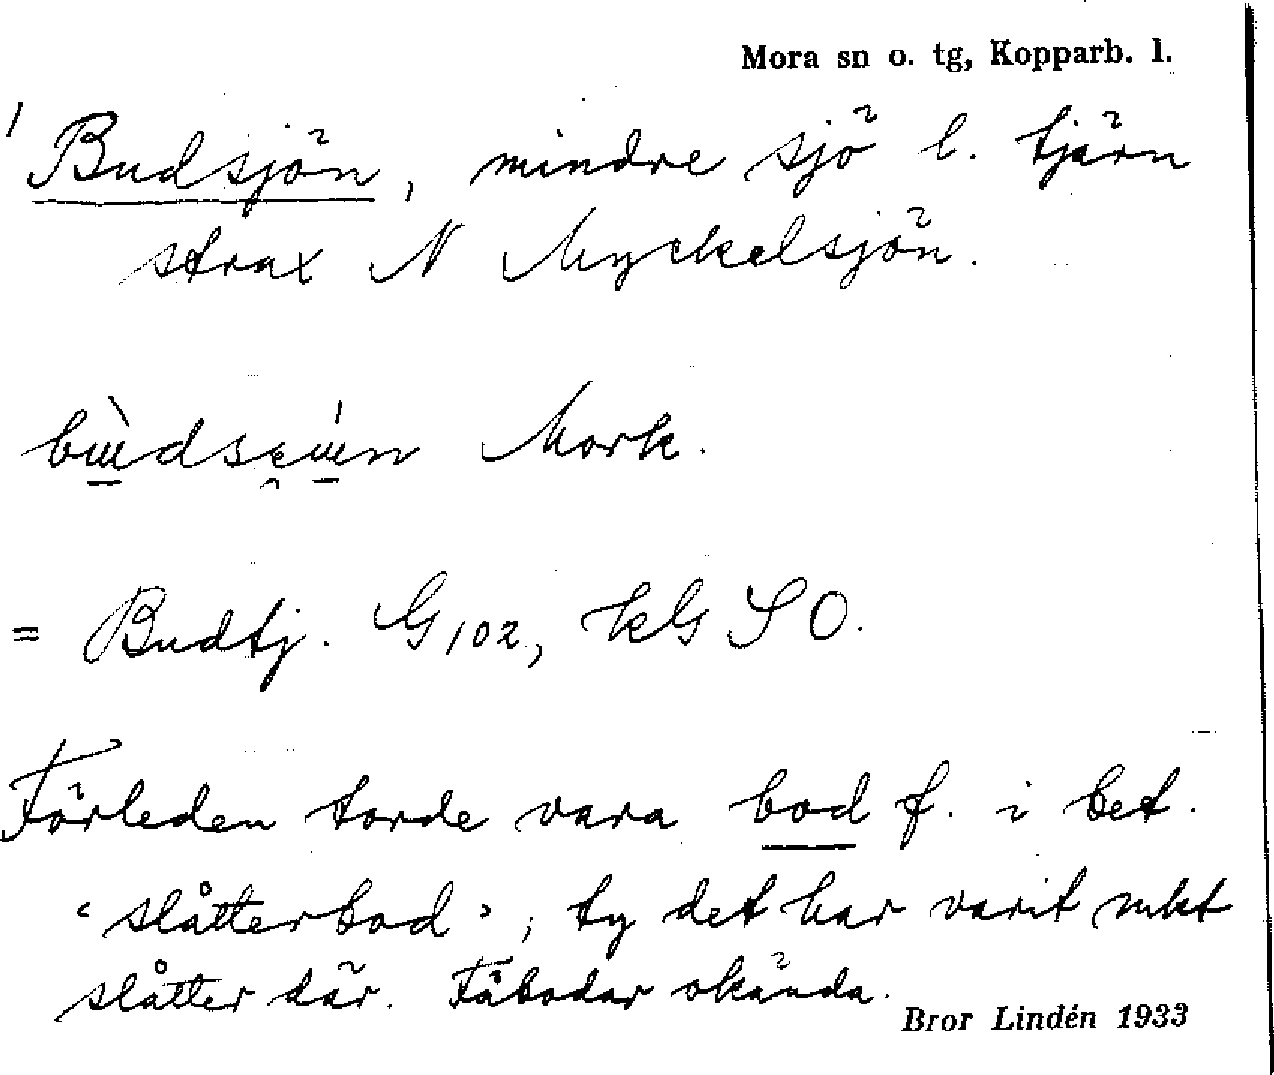 Mora sn o. tg, Kopparb. l.
Budsjön, mindre sjö l. tjärn
strax N Myckelsjön.
Mork.
= Budtj. G 102, kG SO.
Förleden torde vara bod f. i bet.
‘slåtterbod’, ty det har varit mkt
slåtter där. Fäbodar okända.
Bror Lindén 1933